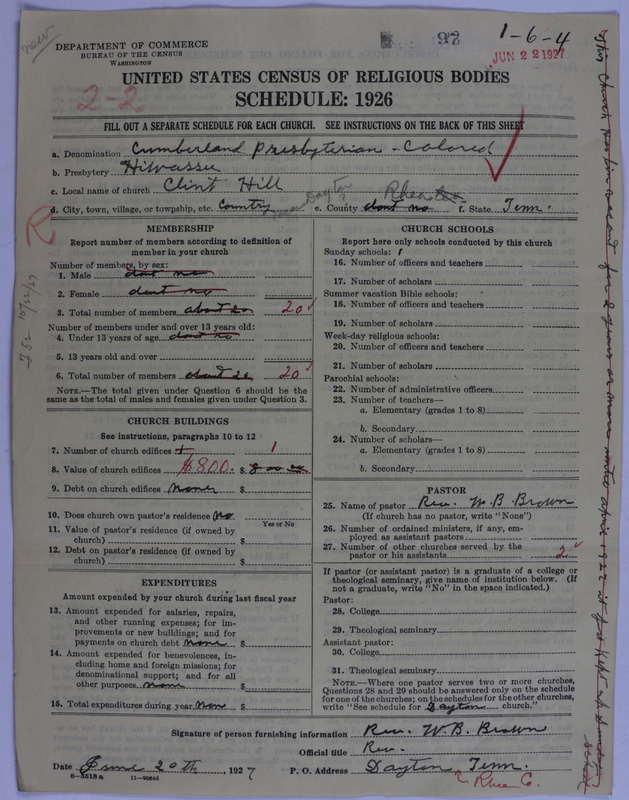 new
DEPARTMENT OF COMMERCE
BUREAU OF THE CENSUS
WASHINGTON
97
1-6-4
JUN 22 1927
UNITED STATES CENSUS OF RELIGIOUS BODIES
2-2
SCHEDULE: 1926
FILL OUT A SEPARATE SCHEDULE FOR EACH CHURCH. SEE INSTRUCTIONS ON THE BACK OF THIS SHEET
a. Denomination Cumberland Presbyterian - Colored
b. Presbytery Hiwassee
c. Local name of church Clint Hill
d. City, town, village, or township, etc. Country near Dayton e. County dont no Rhea f. State Tenn.
R
MEMBERSHIP
Report number of members according to definition of member in your church
Number of members, by sex:
1. Male dont no
2. Female dont no
3. Total number of members about 20 20
Number of members under and over 13 years old:
4. Under 13 years of age dont no
5. 13 years old and over
6. Total number of members about 20 20
NOTE.—The total given under Question 6 should be the
same as the total of males and females given under Question 3.
CHURCH BUILDINGS
See instructions, paragraphs 10 to 12
7. Number of church edifices 1 1
8. Value of church edifices $800. $ 800
9. Debt on church edifices none $
10. Does church own pastor's residence? No
Yes or No
11. Value of pastor's residence (if owned by
church) $
12. Debt on pastor's residence (if owned by
church) $
EXPENDITURES
Amount expended by your church during last fiscal year
13. Amount expended for salaries, repairs,
and other running expenses; for im-
provements or new buildings; and for
payments on church debt none $
14. Amount expended for benevolences, in-
cluding home and foreign missions; for
denominational support; and for all
other purposes none $
15. Total expenditures during year none $
CHURCH SCHOOLS
Report here only schools conducted by this church
Sunday schools:
16. Number of officers and teachers
17. Number of scholars
Summer vacation Bible schools:
18. Number of officers and teachers
19. Number of scholars
Week-day religious schools:
20. Number of officers and teachers
21. Number of scholars
Parochial schools:
22. Number of administrative officers
23. Number of teachers—
a. Elementary (grades 1 to 8)
b. Secondary
24. Number of scholars—
a. Elementary (grades 1 to 8)
b. Secondary
PASTOR
25. Name of pastor Rev. W. B. Brown
(If church has no pastor, write "None")
26. Number of ordained ministers, if any, em-
ployed as assistant pastors
27. Number of other churches served by the
pastor or his assistants 2
If pastor (or assistant pastor) is a graduate of a college or
theological seminary, give name of institution below. (If
not a graduate, write "No" in the space indicated.)
Pastor:
28. College
29. Theological seminary
Assistant pastor:
30. College
31. Theological seminary
NOTE.—Where one pastor serves two or more churches,
Questions 28 and 29 should be answered only on the schedule
for one of the churches; on the schedules for the other churches,
write "See schedule for Dayton church."
Signature of person furnishing information Rev. W. B. Brown
Official title Rev.
Date June 20th, 1927 P. O. Address Dayton Tenn.
Rhea C.
8-5518a 11-9034
This Church has been vacant for 2 years or more